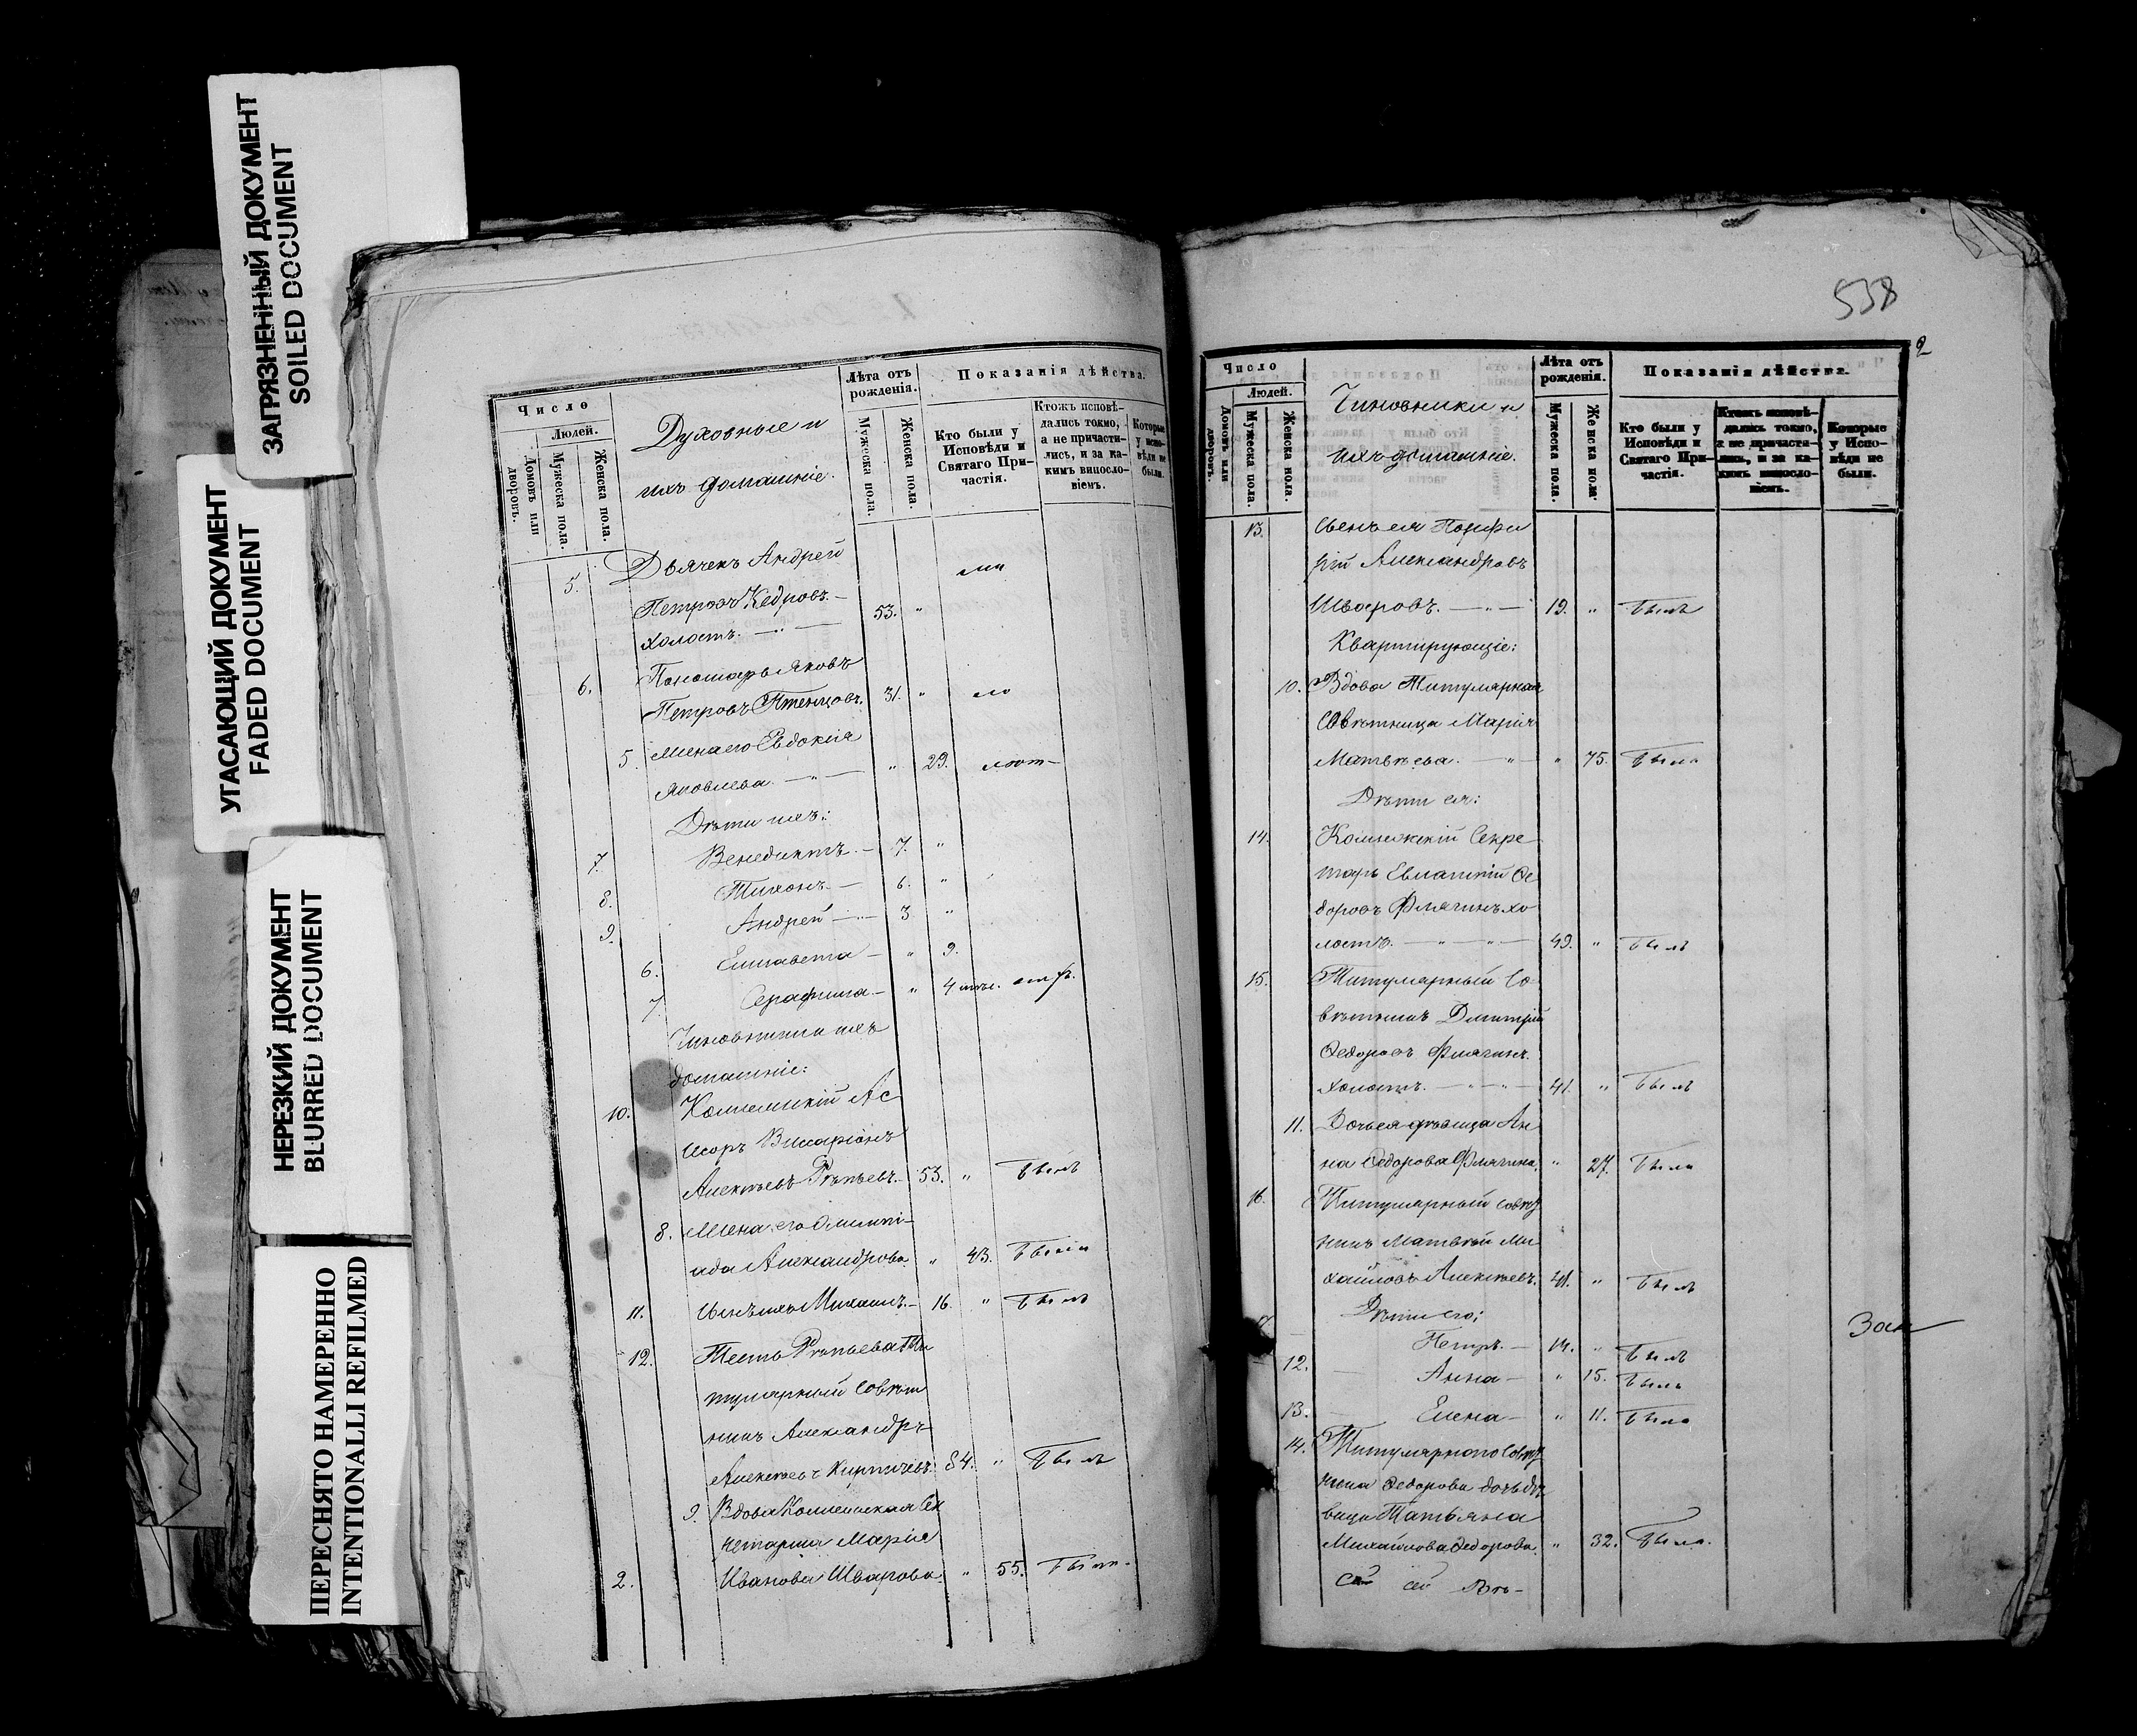 ЗАГРЯЗНЕННЫЙ ДОКУМЕНТ
SOILED DOCUMENT
УГАСАЮЩИЙ ДОКУМЕНТ
FADED DOCUMENT
НЕРЕЗКИЙ ДОКУМЕНТ
BLURRED DOCUMENT
ПЕРЕСНЯТО НАМЕРЕННО
INTENTIONALLI REFILMED
Число
Людей.
Домовъ или дворовъ.
Мужеска пола.
Женска пола.
Духовные и
ихъ домашніе.
Лѣта отъ рожденія.
Мужеска пола.
Женска пола.
Показанія дѣйства.
Кто были у Исповѣди и Святаго При-
частія.
Ктожъ исповѣ-
дались токмо,
а не причасти-
лись, и за ка-
кимъ виносло-
віемъ.
Которые
у испо-
вѣди не
были.
5. Дьячекъ Андрей
Петровъ Кедровъ.— 53. „
холостъ. — „ —
6. Пономарь Яковъ
Петровъ Птенцовъ. 31. „
5. Жена его Евдокія
Яковлева. — „ — „ 29.
Дѣти ихъ:
7. Венедиктъ.— 7. „
8. Тихонъ.— 6. „
9. Андрей — 3 „
6. Елисавета — „ 9.
7. Серафима — „ 4
Чиновники и ихъ
домашніе:
10. Коллежскій Ас
сесоръ Висаріонъ
Алексѣевъ Рѣпьевъ.— 53. „ былъ
8. Жена его Олимпі-
ада Александрова. „ 43. была
11. Сынъ ихъ Михаилъ.— 16. „ былъ
12. Тесть Рѣпьева Ти
тулярный Совѣт
никъ Александръ
Алексѣевъ Кирпичевъ. 84. „ былъ
9. Вдова Коллежская Се
кретарша Марія
2. Иванова Шварова. „ 55. была.
538
2
Число
Людей.
Домовъ или дворовъ.
Мужеска пола.
Женска пола.
Чиновники и
ихъ домашніе.
Лѣта отъ рожденія.
Мужеска пола.
Женска пола.
Показанія дѣйства.
Кто были у
Исповѣди и
Святаго При-
частія.
Ктожъ исповѣ-
дались токмо,
а не причасти-
лись, и за ка-
кимъ виносло-
віемъ.
Которые
у Испо-
вѣди не
были.
13. Сынъ ея Порфи
рій Александровъ
Шваровъ. — „ — 19. „ былъ
Квартирующіе:
10. Вдова Титулярная
Совѣтница Марія
Матвѣева. — „ — „ 75. была
Дѣти ея:
14. Коллежскій Секре
тарь Евлампій Ѳе
доровъ Флягинъ хо-
лостъ. — „ — „ — 49. „ былъ
15. Титулярный Со-
вѣтникъ Дмитрій
Ѳедоровъ Флягинъ.
холостъ. — „ — „ — 41. „ былъ
11. Дочь ея дѣвица Ан
на Ѳедорова Флягина. „ 27. была
16. Титулярный совѣт
никъ Матвѣй Ми
хайловъ Алексѣевъ. 41. „ былъ
Дѣти его:
Петръ. — 14. „ былъ
12. Анна — „ 15. была
13. Елена — „ 11. была
14. Титулярного Совѣт
ника Ѳедорова дочь дѣ
вица Татьяна
Михайлова Ѳедорова. „ 32. была.